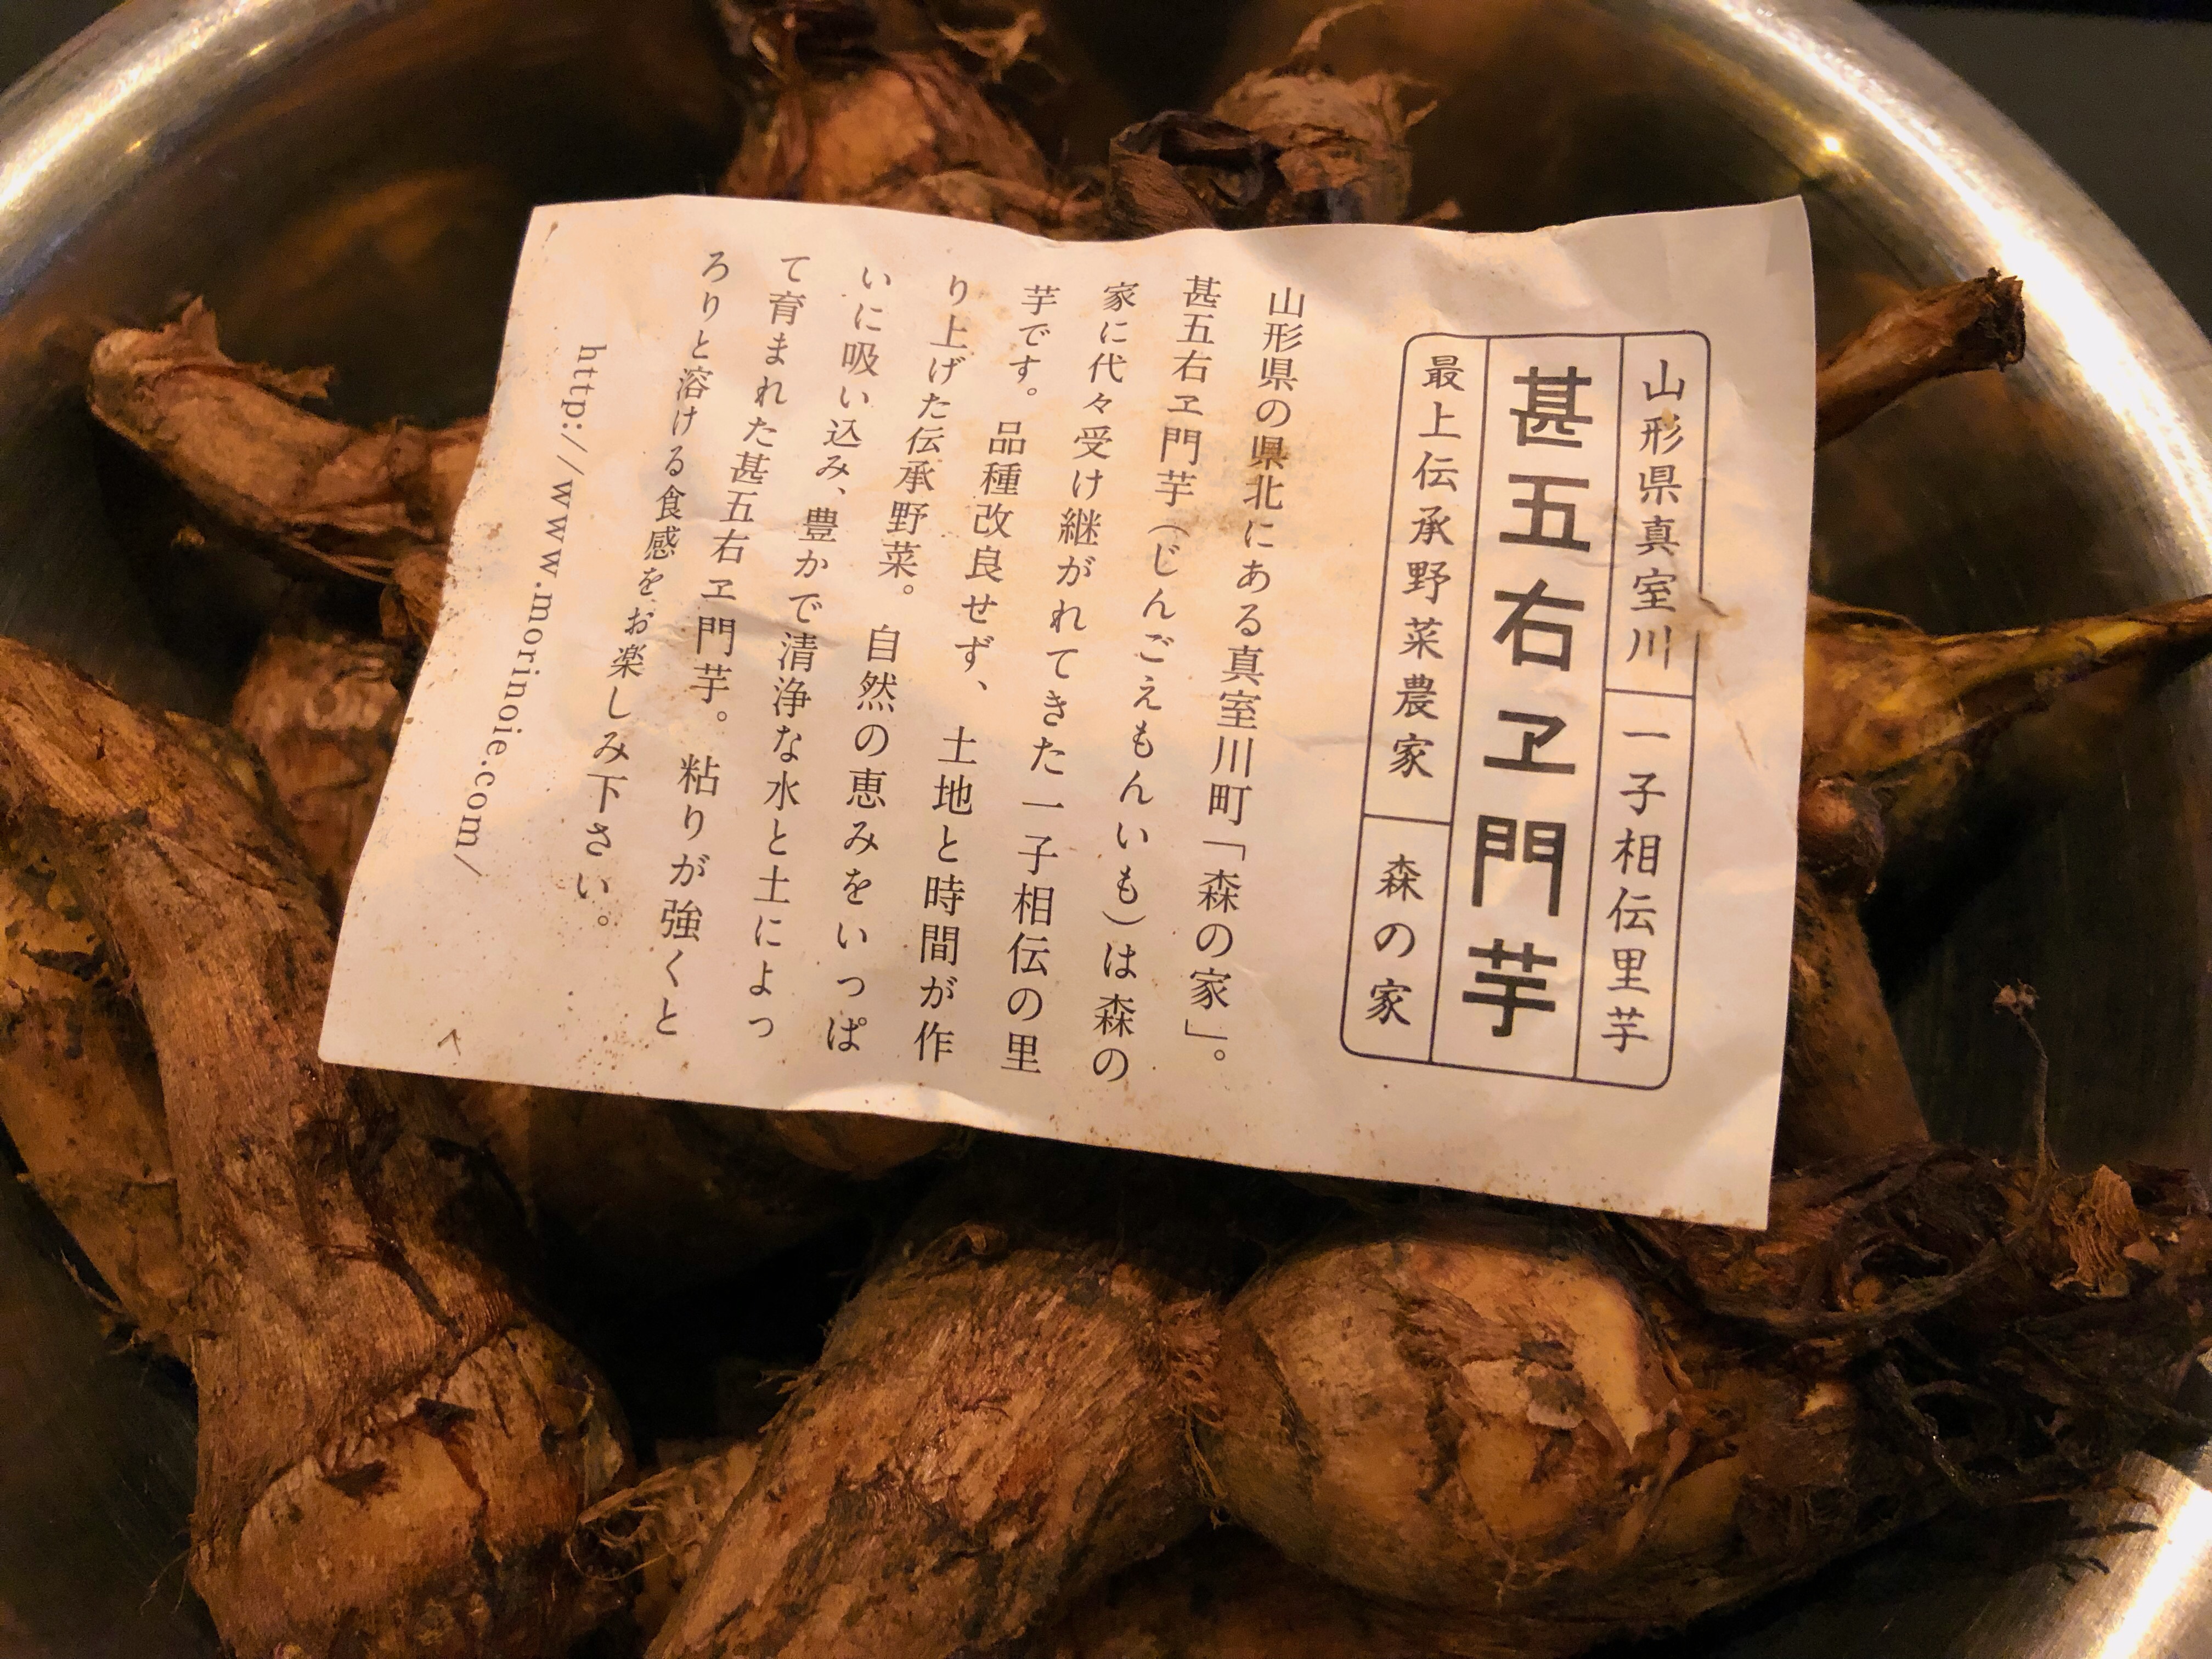 山形県真室川 一子相伝里芋
甚五右ヱ門芋
最上伝承野菜農家 森の家
山形県の県北にある真室川町「森の家」。
甚五右ヱ門芋（じんごえもんいも）は森の
家に代々受け継がれてきた一子相伝の里
芋です。品種改良せず、土地と時間が作
り上げた伝承野菜。自然の恵みをいっぱ
いに吸い込み、豊かで清浄な水と土によっ
て育まれた甚五右ヱ門芋。粘りが強くと
ろりと溶ける食感をお楽しみ下さい。
http://www.morinoie.com/